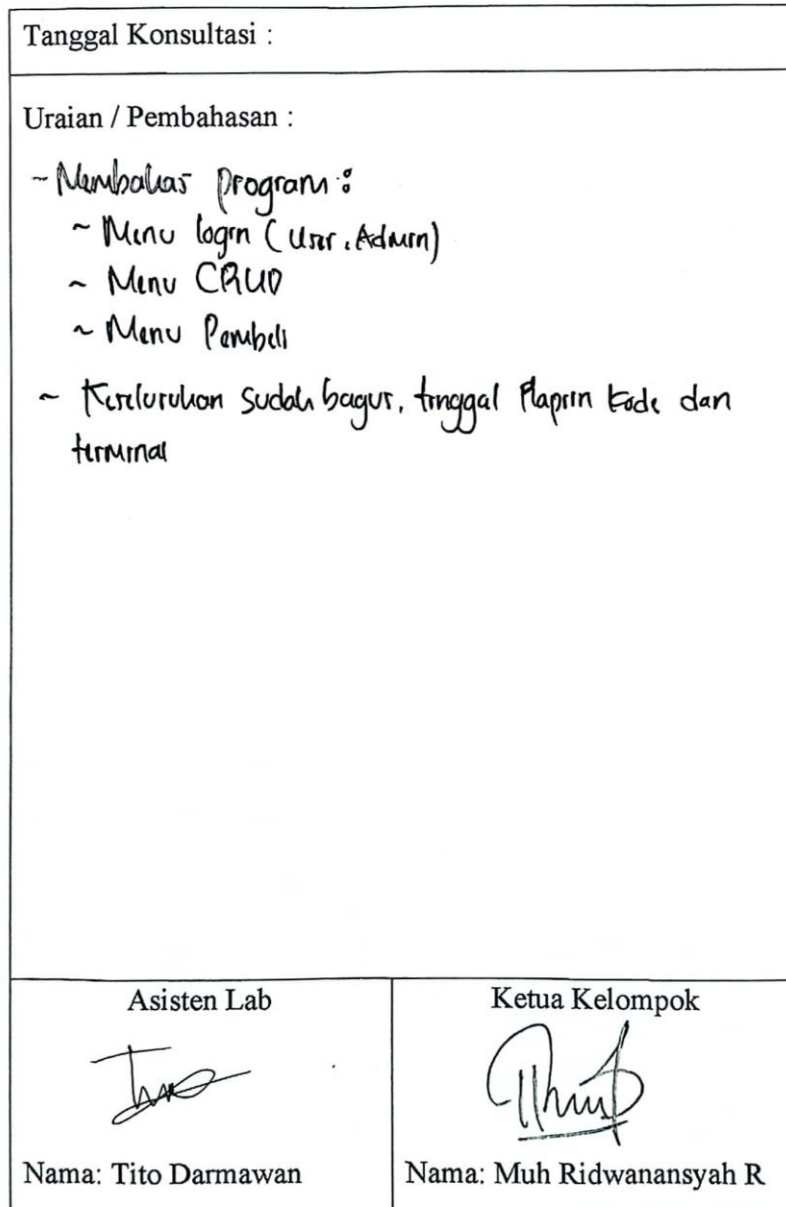 Tanggal Konsultasi :
Uraian / Pembahasan :
- Membahas program :
~ Menu login (User, Admin)
~ Menu CRUD
~ Menu Pembeli
~ Keseluruhan sudah bagus, tinggal Rapiin kode dan
terminal
Asisten Lab
Ketua Kelompok
Nama: Tito Darmawan
Nama: Muh Ridwanansyah R